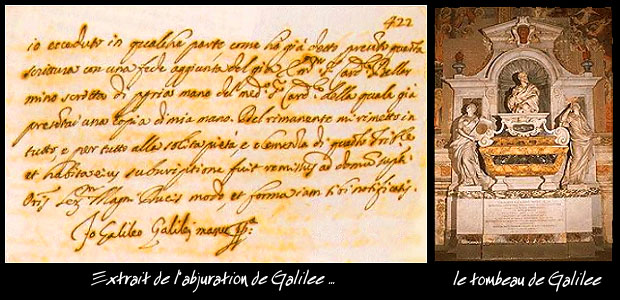 422
io ecceduto in qualche parte come ho già detto presento questa
scrittura con una fede aggiunta del già Emmo Sr Card. Bellar
mino scritta di propria mano del medmo Sr Card. della quale già
presentai una copia di mia mano. Del rimanente mi rimetto in
tutto, e per tutto alla solita pietà, e clemenza di questo Trible
et habita eius subscriptione fuit remissus ad domum
Oris Magni Ducis modo, et forma iam sibi notificatis.
Io Galileo Galilei manu ppa
Extrait de l'abjuration de Galilee ...
le tombeau de Galilee